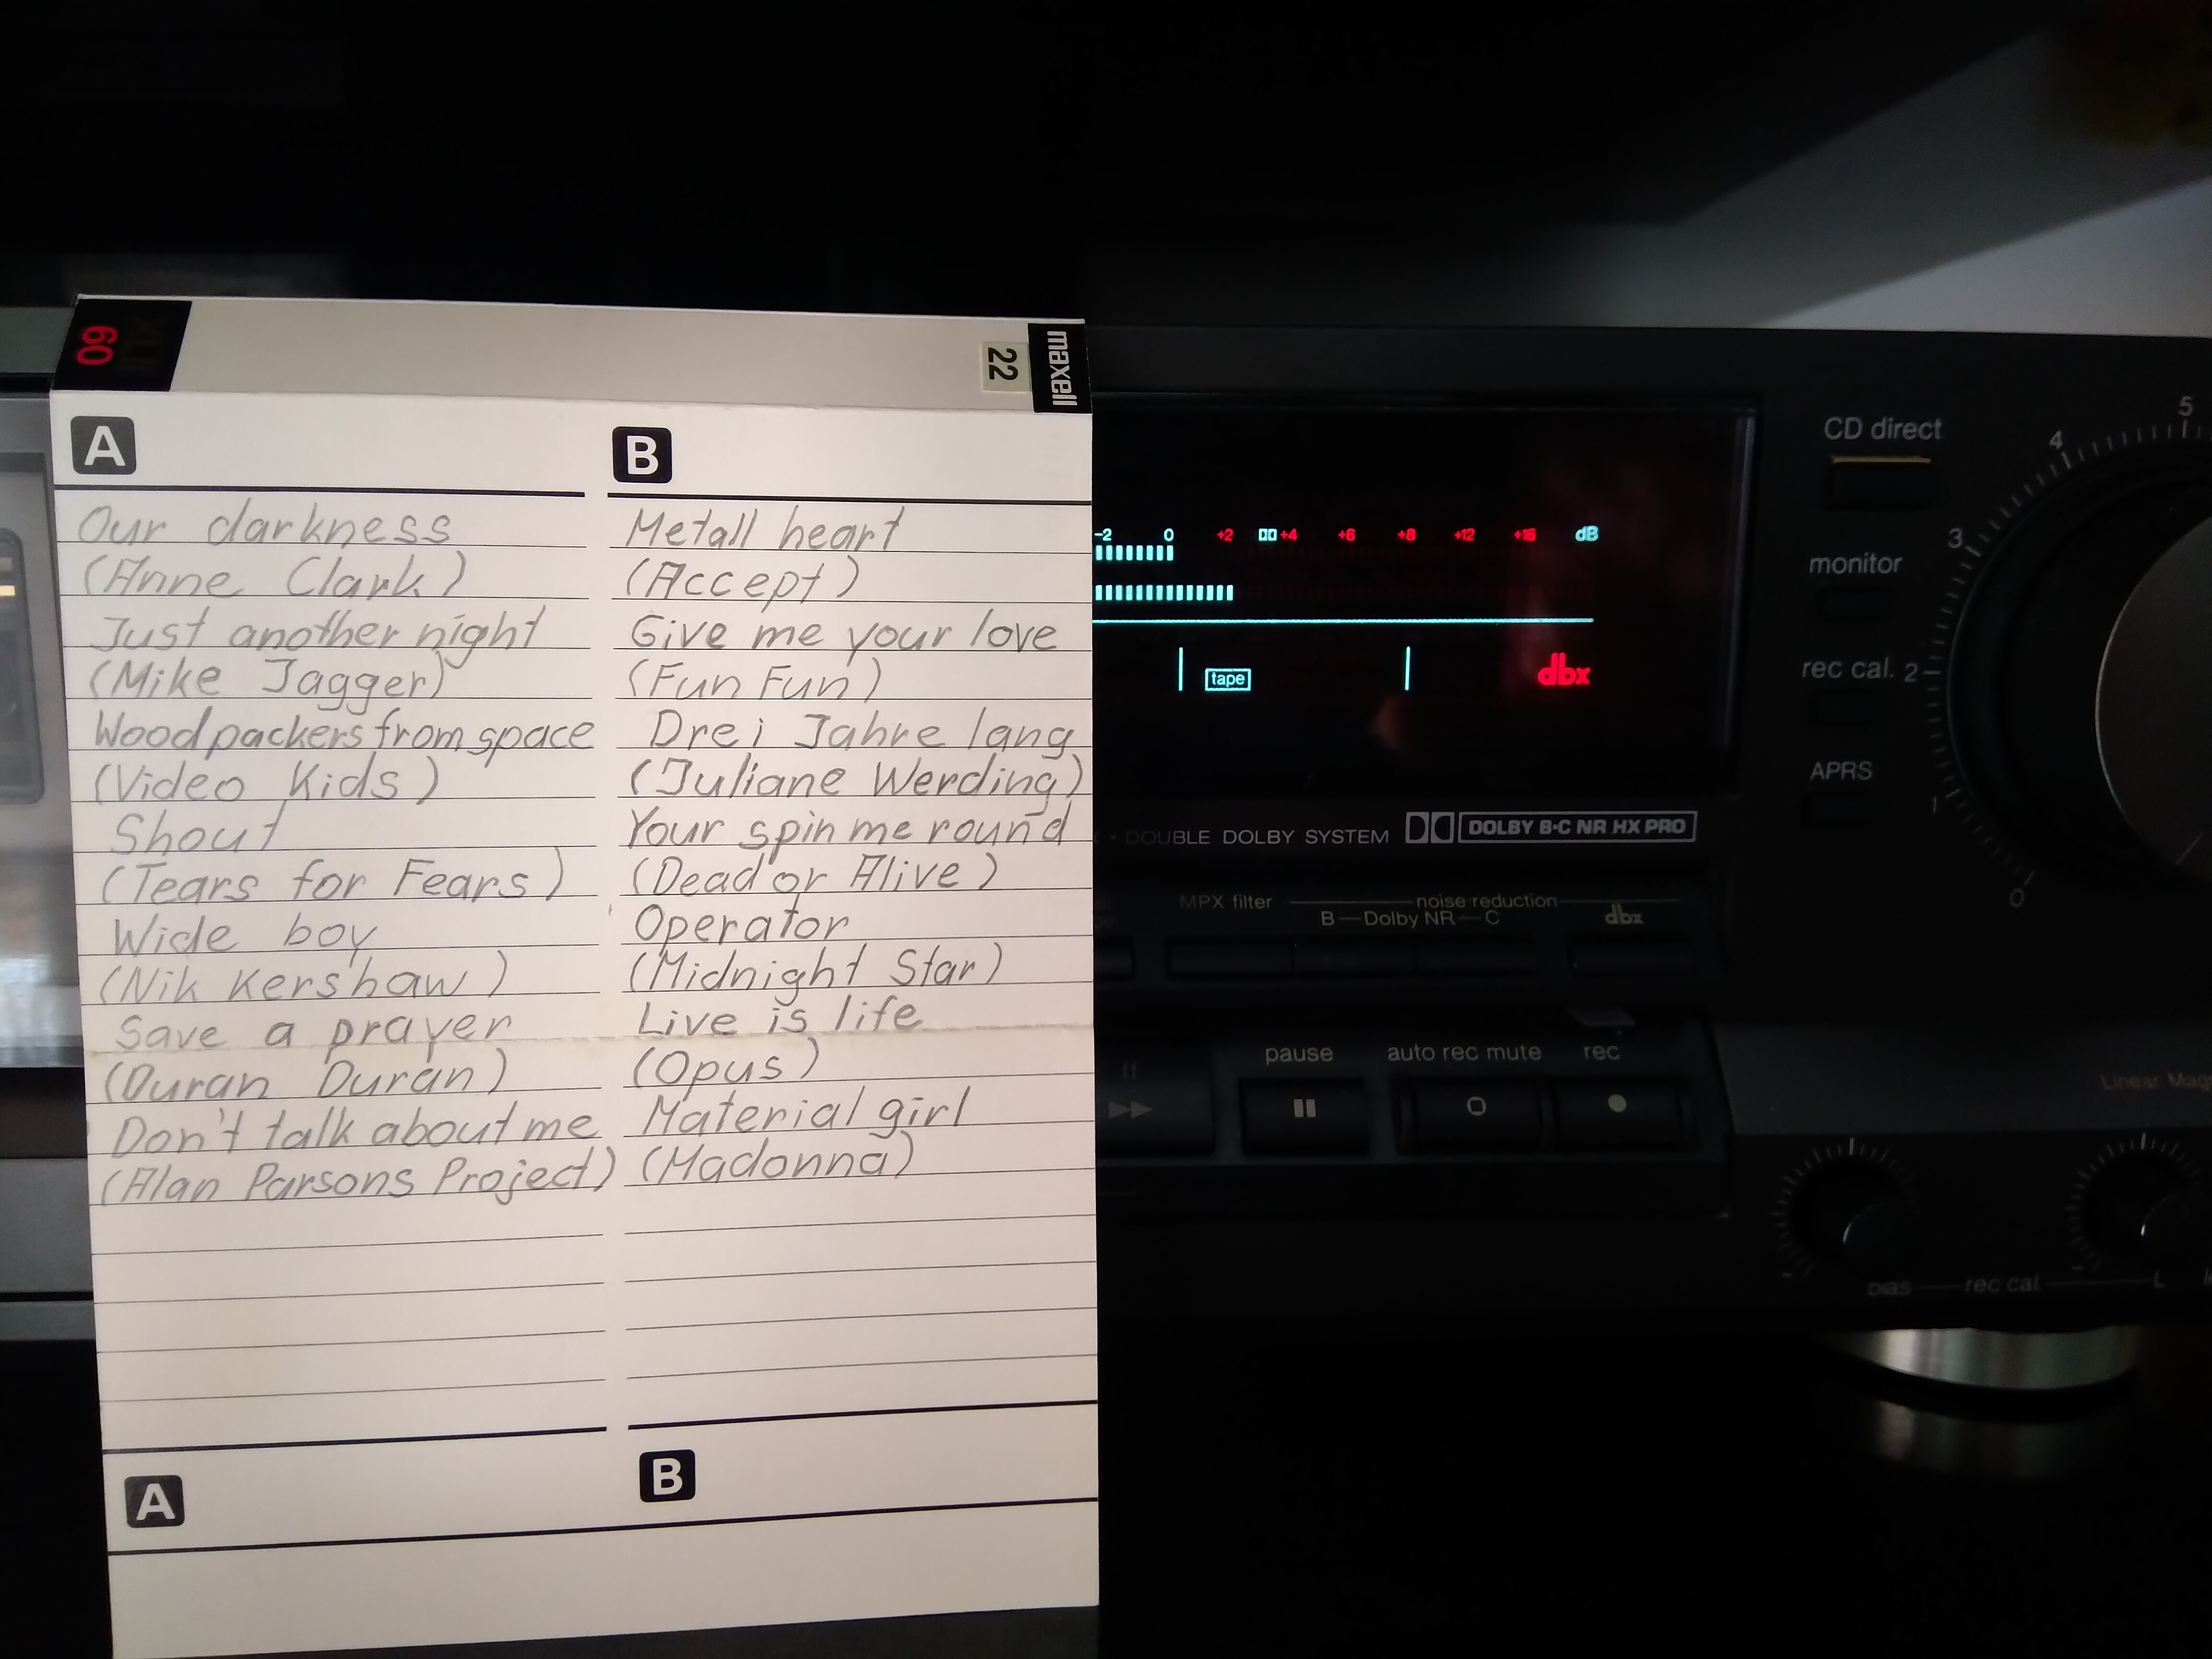 60
22
maxell
A
Our darkness
(Anne Clark)
Just another night
(Mike Jagger)
Woodpackers from space
(Video Kids)
Shout
(Tears for Fears)
Wide boy
(Nik Kershaw)
Save a prayer
(Duran Duran)
Don't talk about me
(Alan Parsons Project)
A
B
Metall heart
(Accept)
Give me your love
(Fun Fun)
Drei Jahre lang
(Juliane Werding)
Your spin me round
(Dead or Alive)
Operator
(Midnight Star)
Live is life
(Opus)
Material girl
(Madonna)
B
-2 0 +2 +4 +6 +8 +12 +16 dB
tape
dbx
• DOUBLE DOLBY SYSTEM DOLBY B·C NR HX PRO
MPX filter
noise reduction
B — Dolby NR — C
dbx
ff
pause
auto rec mute
rec
CD direct
monitor
rec cal.
APRS
5
4
3
2
1
0
Linear
bias
rec cal
L